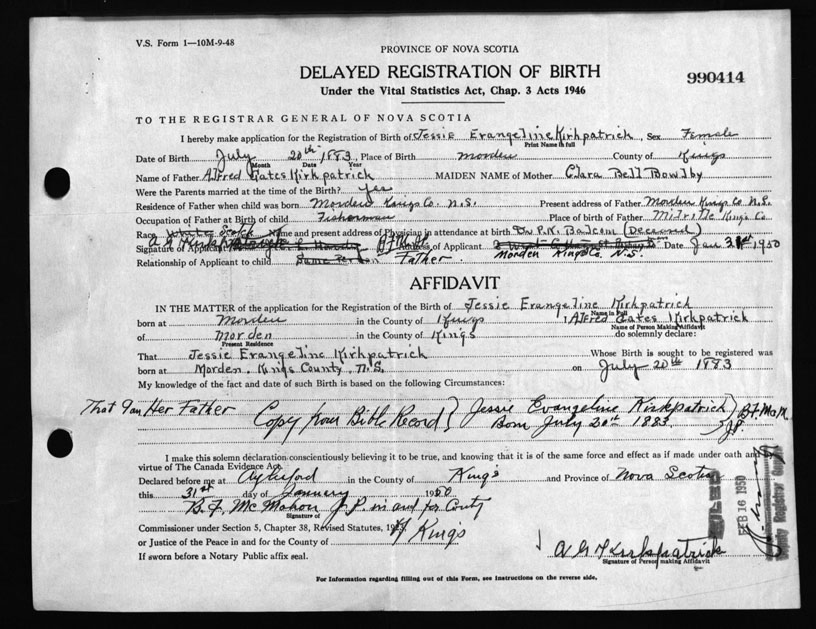 V.S. Form 1—10M-9-48
PROVINCE OF NOVA SCOTIA
DELAYED REGISTRATION OF BIRTH
Under the Vital Statistics Act, Chap. 3 Acts 1946
990414
TO THE REGISTRAR GENERAL OF NOVA SCOTIA
I hereby make application for the Registration of Birth of Jessie Evangeline Kirkpatrick, Sex Female
Print Name in full
Date of Birth July 20th 1883, Place of Birth Morden County of Kings
Month Date Year
Name of Father Alfred Gates Kirkpatrick MAIDEN NAME of Mother Clara Bell Bowlby
Were the Parents married at the time of the Birth? yes
Residence of Father when child was born Morden Kings Co. N.S. Present address of Father Morden Kings Co. N.S.
Occupation of Father at Birth of child Fisherman Place of birth of Father Kings Co
Race White Scotch Name and present address of Physician in attendance at birth Dr P.N. Balcom (Deceased)
Signature of Applicant A G Kirkpatrick Address of Applicant Date Jan 31st 1950
Morden Kings Co. N.S.
Relationship of Applicant to child Same Person Father
AFFIDAVIT
IN THE MATTER of the application for the Registration of the Birth of Jessie Evangeline Kirkpatrick
Name in Full
born at Morden in the County of Kings I Alfred Gates Kirkpatrick
Name of Person Making Affidavit
of Morden in the County of Kings do solemnly declare:
Present Residence
That Jessie Evangeline Kirkpatrick Whose Birth is sought to be registered was
born at Morden, Kings County, N.S. on July 20th 1883
My knowledge of the fact and date of such Birth is based on the following Circumstances:
That I am Her Father Copy from Bible Record } Jessie Evangeline Kirkpatrick } B.F. McM.
Born July 20th 1883. J.P.
I make this solemn declaration conscientiously believing it to be true, and knowing that it is of the same force and effect as if made under oath and by
virtue of The Canada Evidence Act.
Declared before me at Aylesford in the County of Kings and Province of Nova Scotia
this 31st day of January 1950
B. F. McMahon J.P. in and for County
Signature of
Commissioner under Section 5, Chapter 38, Revised Statutes, 1923
or Justice of the Peace in and for the County of Kings
If sworn before a Notary Public affix seal.
A G Kirkpatrick
Signature of Person making Affidavit
FEB 16 1950
Deputy Registrar General
For Information regarding filling out of this Form, see instructions on the reverse side.